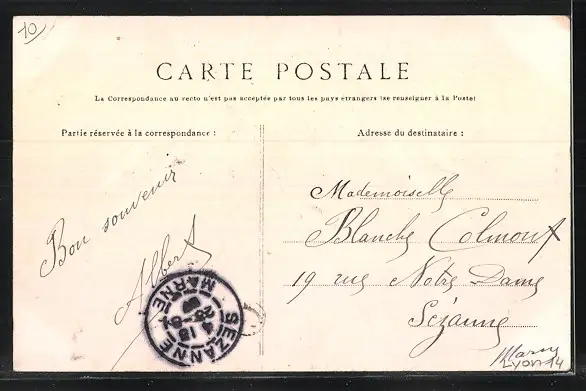 10
CARTE POSTALE
La Correspondance au recto n'est pas acceptée par tous les pays étrangers (se renseigner à la Poste)
Partie réservée à la correspondance :
Adresse du destinataire :
Bon souvenir
Albert
Mademoiselle
Blanche Colmont
19 rue Notre Dame
Sézanne
SEZANNE
MARNE